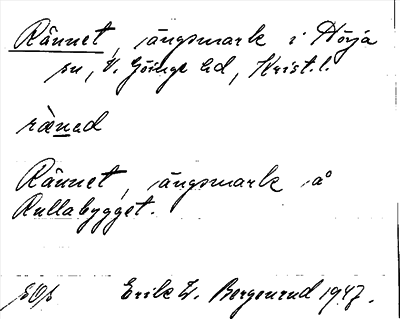 Rännet, ängsmark i Hörja
sn, V. Göinge hd, Krist. l.
ränəd
Rännet, ängsmark å
Rullabygget.
Erik W. Bergsnrud 1947.